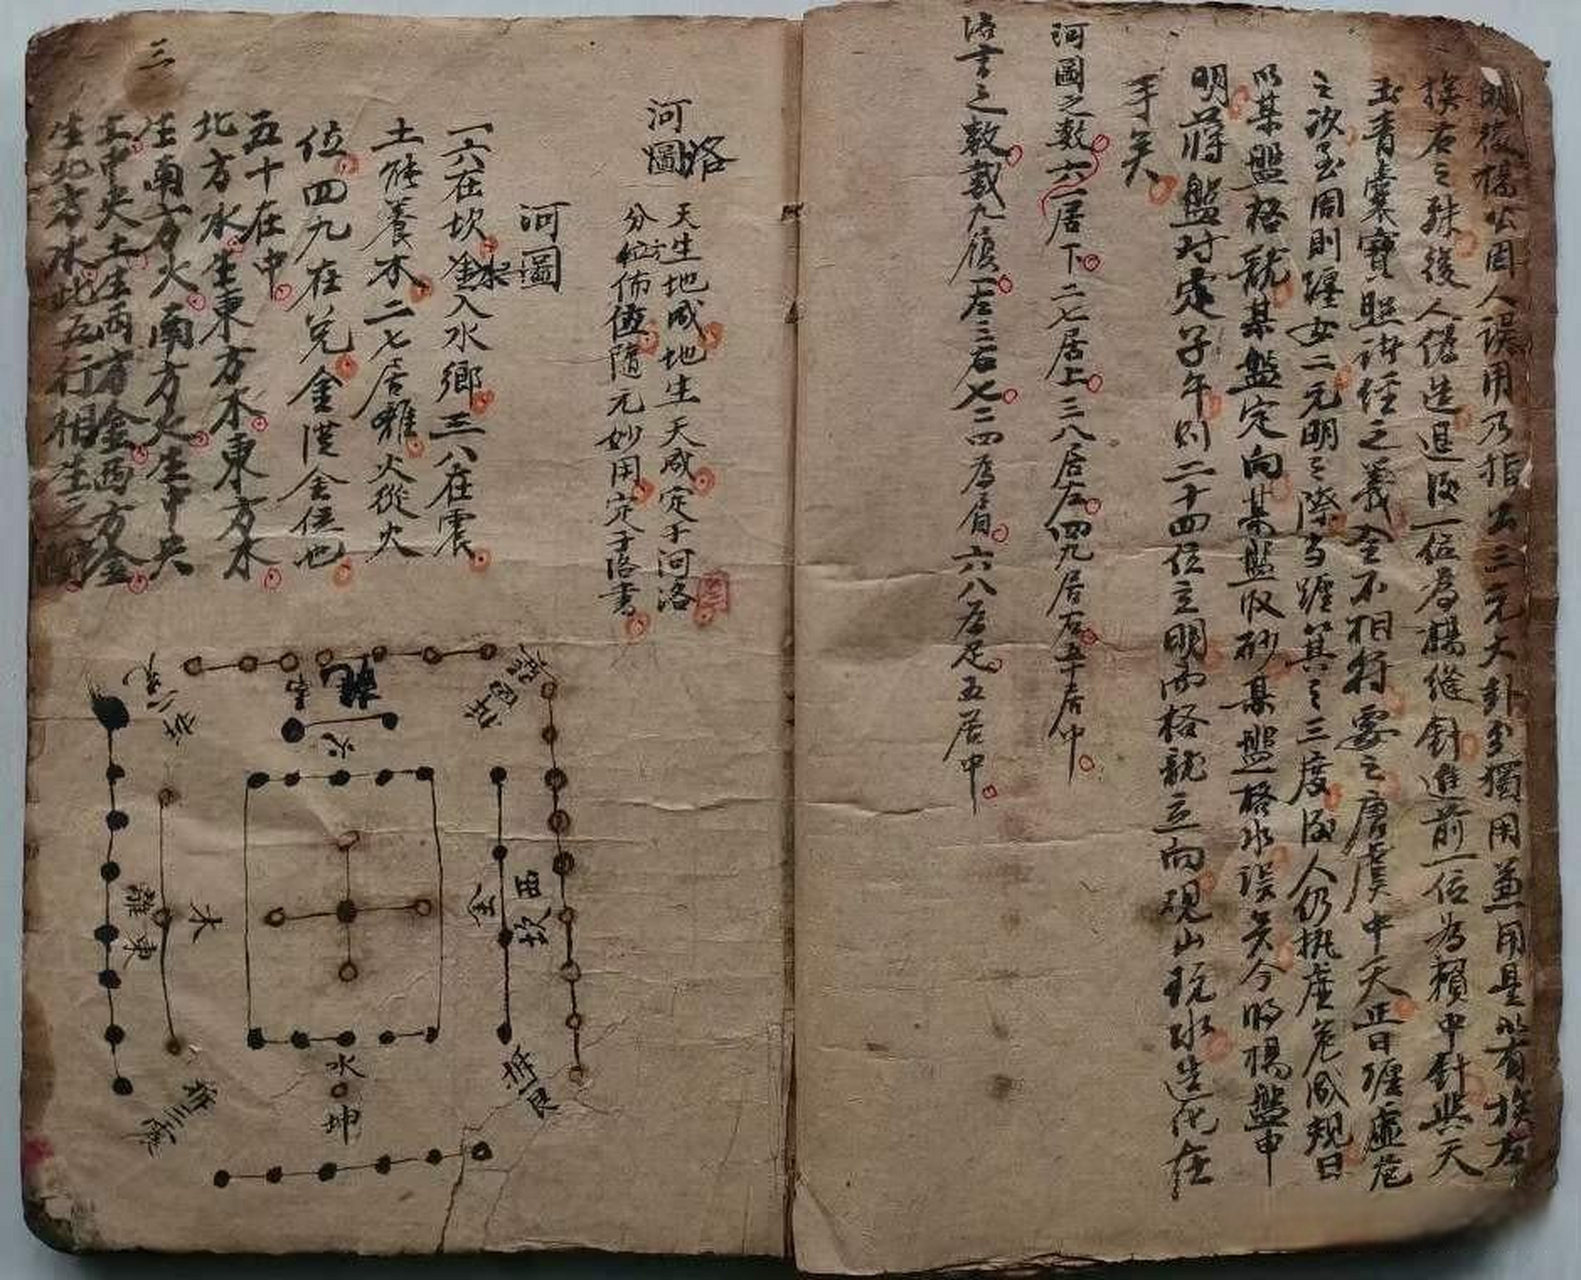 明後楊公因人誤用乃指出三元大卦分獨用兼用是以有挨左
挨右之殊後人僞造退後一位為楊縫針進前一位為賴中針與天
玉青囊寶照諸經之義全不相符要之唐虞中天正日纏虛危
之次至周則纏女二元明之際当纏箕之三度後人仍执虛危咸規曰
以某盤格龍某盤定向某盤収砂某盤格水誤矣今將楊盤申
明蔣盤对定子午則二十四位立明而格龍立向观山玩水造化在
手矣
河圖之数六一居下二七居上三八居左四九居右五十居中
洛書之数戴九履一左三右七二四為肩六八為足五居中
河洛
圖
天生地成地生天成定于河洛
分位佈值隨元妙用定于洛書
河圖
一六在坎金水入水鄉三八在震
土能養木二七居離火從火
位四九在兌金從金位也
五十在中
北方水生東方木東方木
生南方火南方火生中央
土中央土生西方金西方金
生北方水此五行相生之
三
乾
南
火
木
離
東
金
西
坎
水
坤
艮